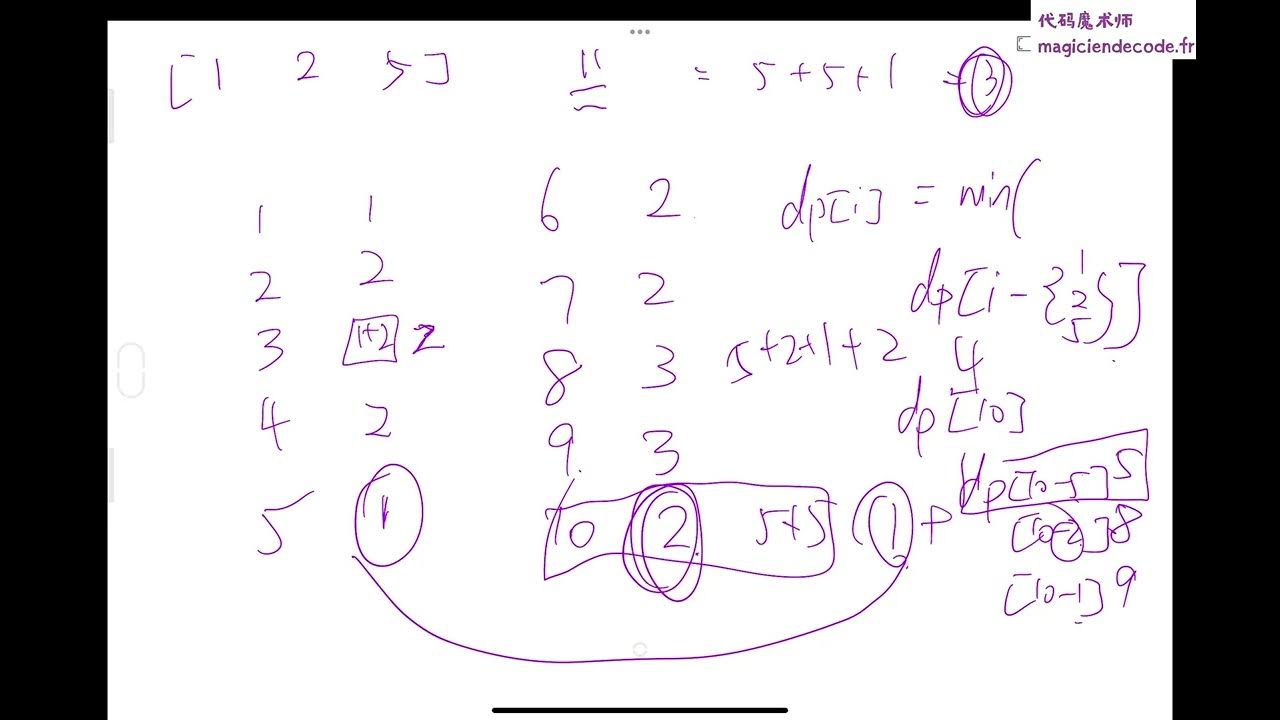 代码魔术师
magiciendecode.fr
[1 2 5] 11 = 5+5+1 = 3
1 1 6 2 dp[i] = min(
2 2 7 2 dp[i-{1 2 5}]
3 1+2 2 8 3 5+2+1+2 4
4 2 9 3 dp[10]
5 1 10 2 5+5 1 + dp[10-5] 5
[10-2] 8
[10-1] 9